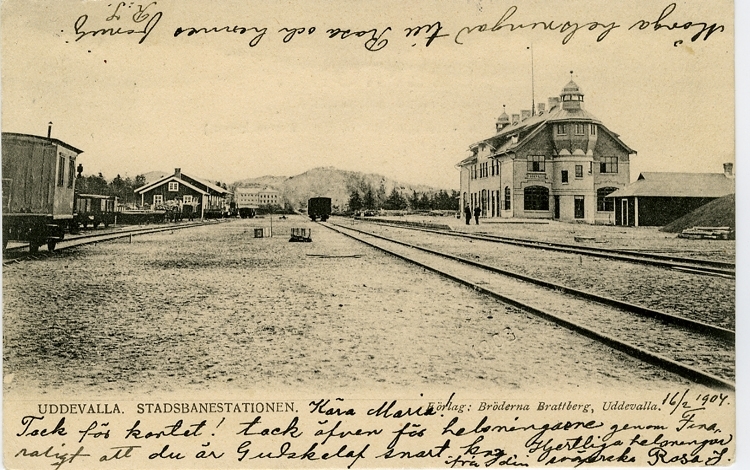 Många helsningar till Rosa och hennes
R. J.
UDDEVALLA. STADSBANESTATIONEN.
Förlag: Bröderna Brattberg, Uddevalla.
16/2 1904
Kära Maria!
Tack för kortet! tack äfven för helsningarne genom Tena.
roligt att du är Gudskelaf snart
Hjertliga helsningar
från din svägerska Rosa J.